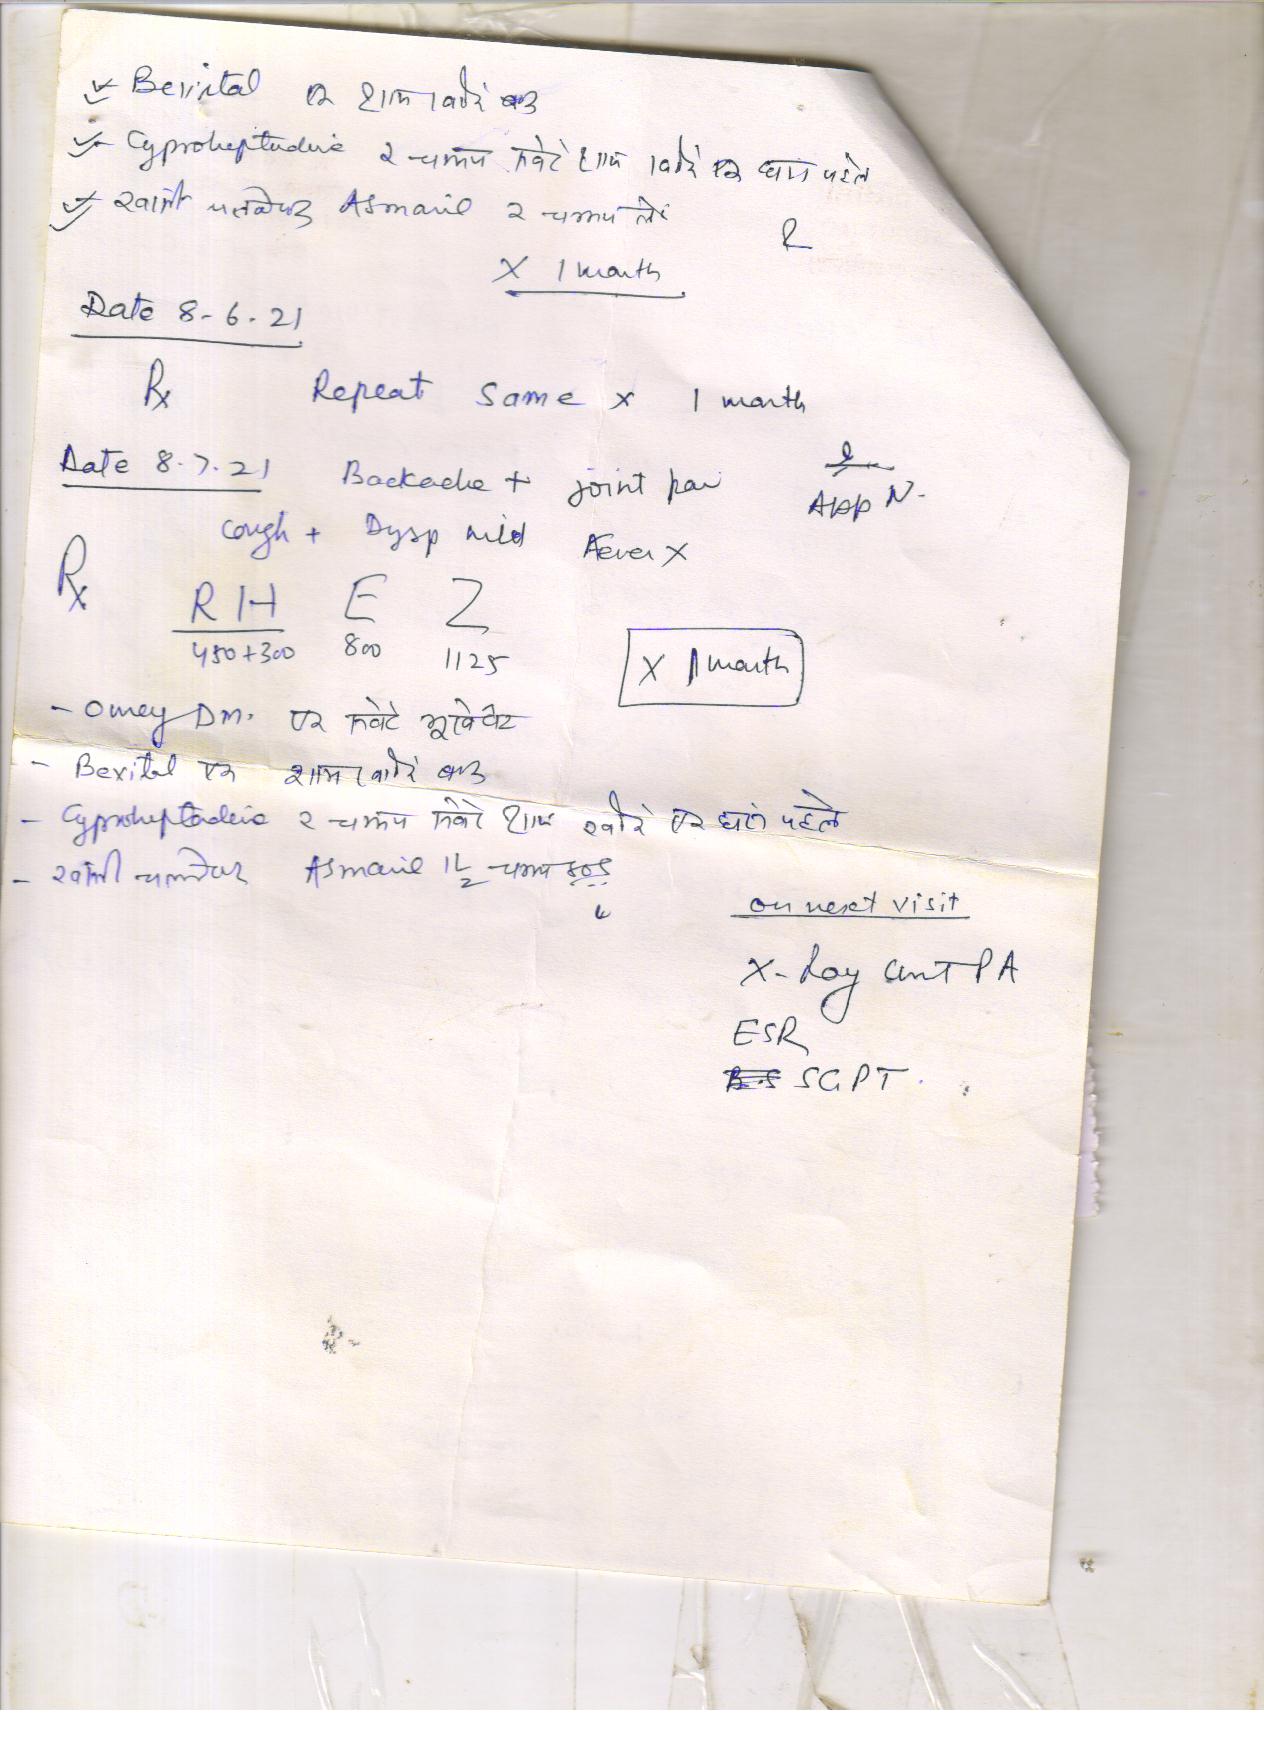 Bexital एक शाम खाने बाद
Cyproheptadine २ चम्मच सवेरे शाम खाने एक घण्टा पहले
खांसी Asmanil २ चम्मच लें
R
X 1 month
Date 8-6-21
Rx Repeat Same x 1 month
Date 8.7.21 Backache + joint pain
App N.
Cough + Dysp mild Fever X
Rx RH E Z
450+300 800 1125
X 1 month
- Omey Dm. एक सवेरे भूखे पेट
- Bexital एक शाम खाने बाद
- Cyproheptadine २ चम्मच सवेरे शाम खाने एक घण्टे पहले
- खांसी Asmanil 1 1/2 चम्मच SOS
on next visit
X-Ray chest PA
ESR
SGPT.